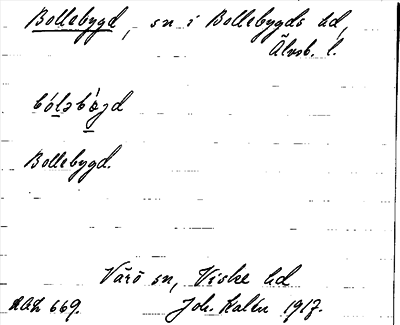 Bollebygd, sn i Bollebygds hd,
Älvsb. l.
bóləbýgd
Bollebygd.
Värö sn, Viske hd
669. Joh. Kalén 1917.